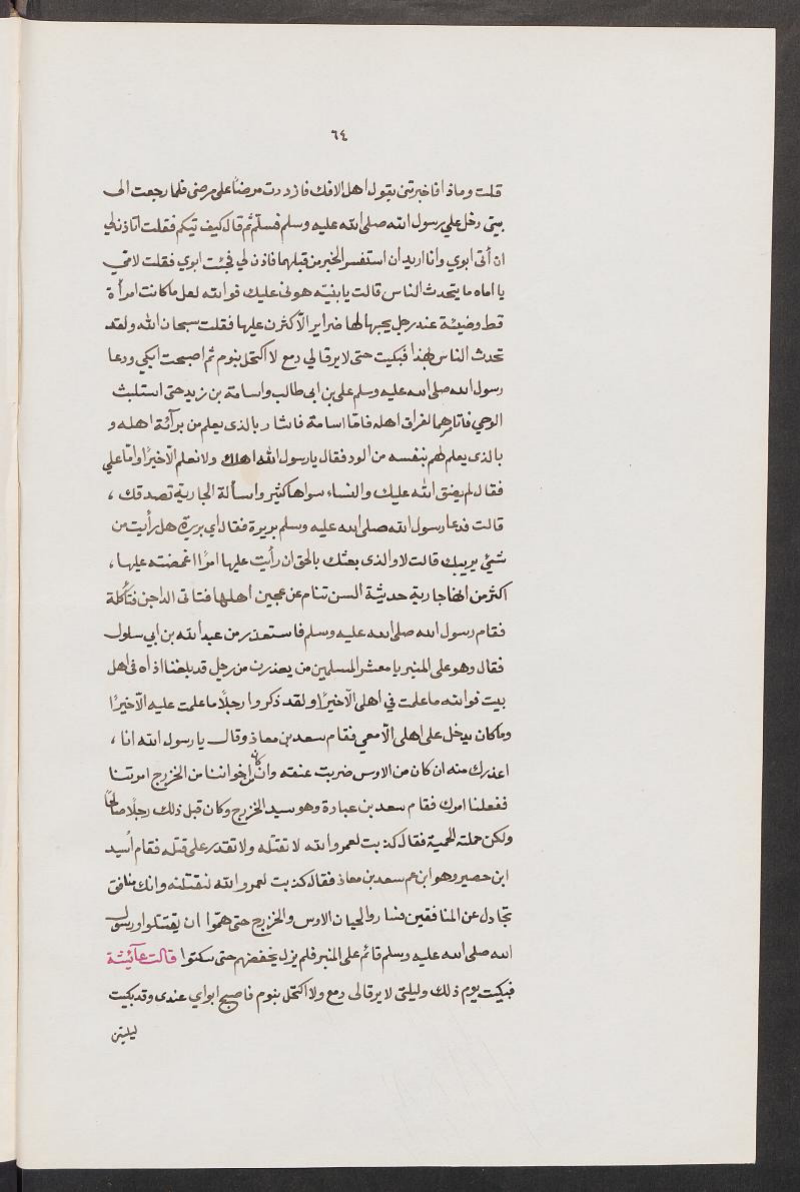 ٦٤
قلت وماذا فاخبرتنى بقول اهل الافك فازددت مرضاً على مرضى فلما رجعت الى
بيتى دخل علي رسول الله صلى الله عليه وسلم فسلّم ثم قال كيف تيكم فقلت اتاذن لي
ان أتى ابوي وانا اريد أن استفسر الخبر من قبلهما فاذن لي فجئت ابوي فقلت لامّي
يا اماه ما يتحدث الناس قالت يا بنيّه هونى عليك فوالله لعل ما كانت امرأة
قط وضيئة عند رجل يحبها لها ضراير الّا كثرن عليها فقلت سبحان الله ولقد
تحدث الناس بهذا فبكيت حتى لا يرقا لي دمع لا اكتحل بنوم ثم اصبحت ابكي ودعا
رسول الله صلى الله عليه وسلم على بن ابى طالب واسامة بن زيد حتى استلبث
الوحي فاتامرهما لفراق اهله فامّا اسامة فاشار بالذى يعلم من برآئة اهله و
بالذى يعلم لهم بنفسه من الود فقال يا رسول الله اهلك ولا نعلم الّا خيرًا وامّا علي
فقال لم يضق الله عليك والنساء سواها كثير واسألة الجارية تصدقك ،
قالت فدعا رسول الله صلى الله عليه وسلم بريرة فقال اي بريرة هل رأيت من
شئي يريبك قالت لا والذى بعثك بالحق ان رأيت عليها امرًا اغمضته عليها ،
اكثر من انها جارية حديثة السن تنام عن عجين اهلها فتاتى الداجن فتأكلة
فقام رسول الله صلى الله عليه وسلم فاستعذر من عبد الله بن ابي سلول
فقال وهو على المنبر يا معشر المسلمين من يعذرنى من رجل قد بلغنا اذاه فى اهل
بيت فوالله ما علمت في اهلى الّا خيرًا ولقد ذكروا رجلًا ما علمت عليه الّا خيرًا
وما كان يدخل على اهلى الّا معي فقام سعد بن معاذ وقال يا رسول الله انا ،
اعذرك منه ان كان من الاوس ضربت عنقه وان كان من اخواننا من الخزرج امرتنا
ففعلنا امرك فقام سعد بن عبادة وهو سيد الخزرج وكان قبل ذلك رجلًا صالحًا
ولكن حملته الحمية فقال كذبت لعمرو الله لا تقتله ولا تقدر على قتله فقام أسيد
ابن حصير وهو ابن عم سعد بن معاذ فقال كذبت لعمرو الله لنقتلنه وانك منافق
تجادل عن المنافقين فثار والحيان الاوس والخزرج حتى همّوا ان يقتتلوا ورسول
الله صلى الله عليه وسلم قائم على المنبر فلم يزل يخفضهم حتى سكتوا قالت عآئيشة
فبكيت يوم ذلك وليلتى لا يرقا لى دمع ولا اكتحل بنوم فاصبح ابواي عندى وقد بكيت
ليلتين